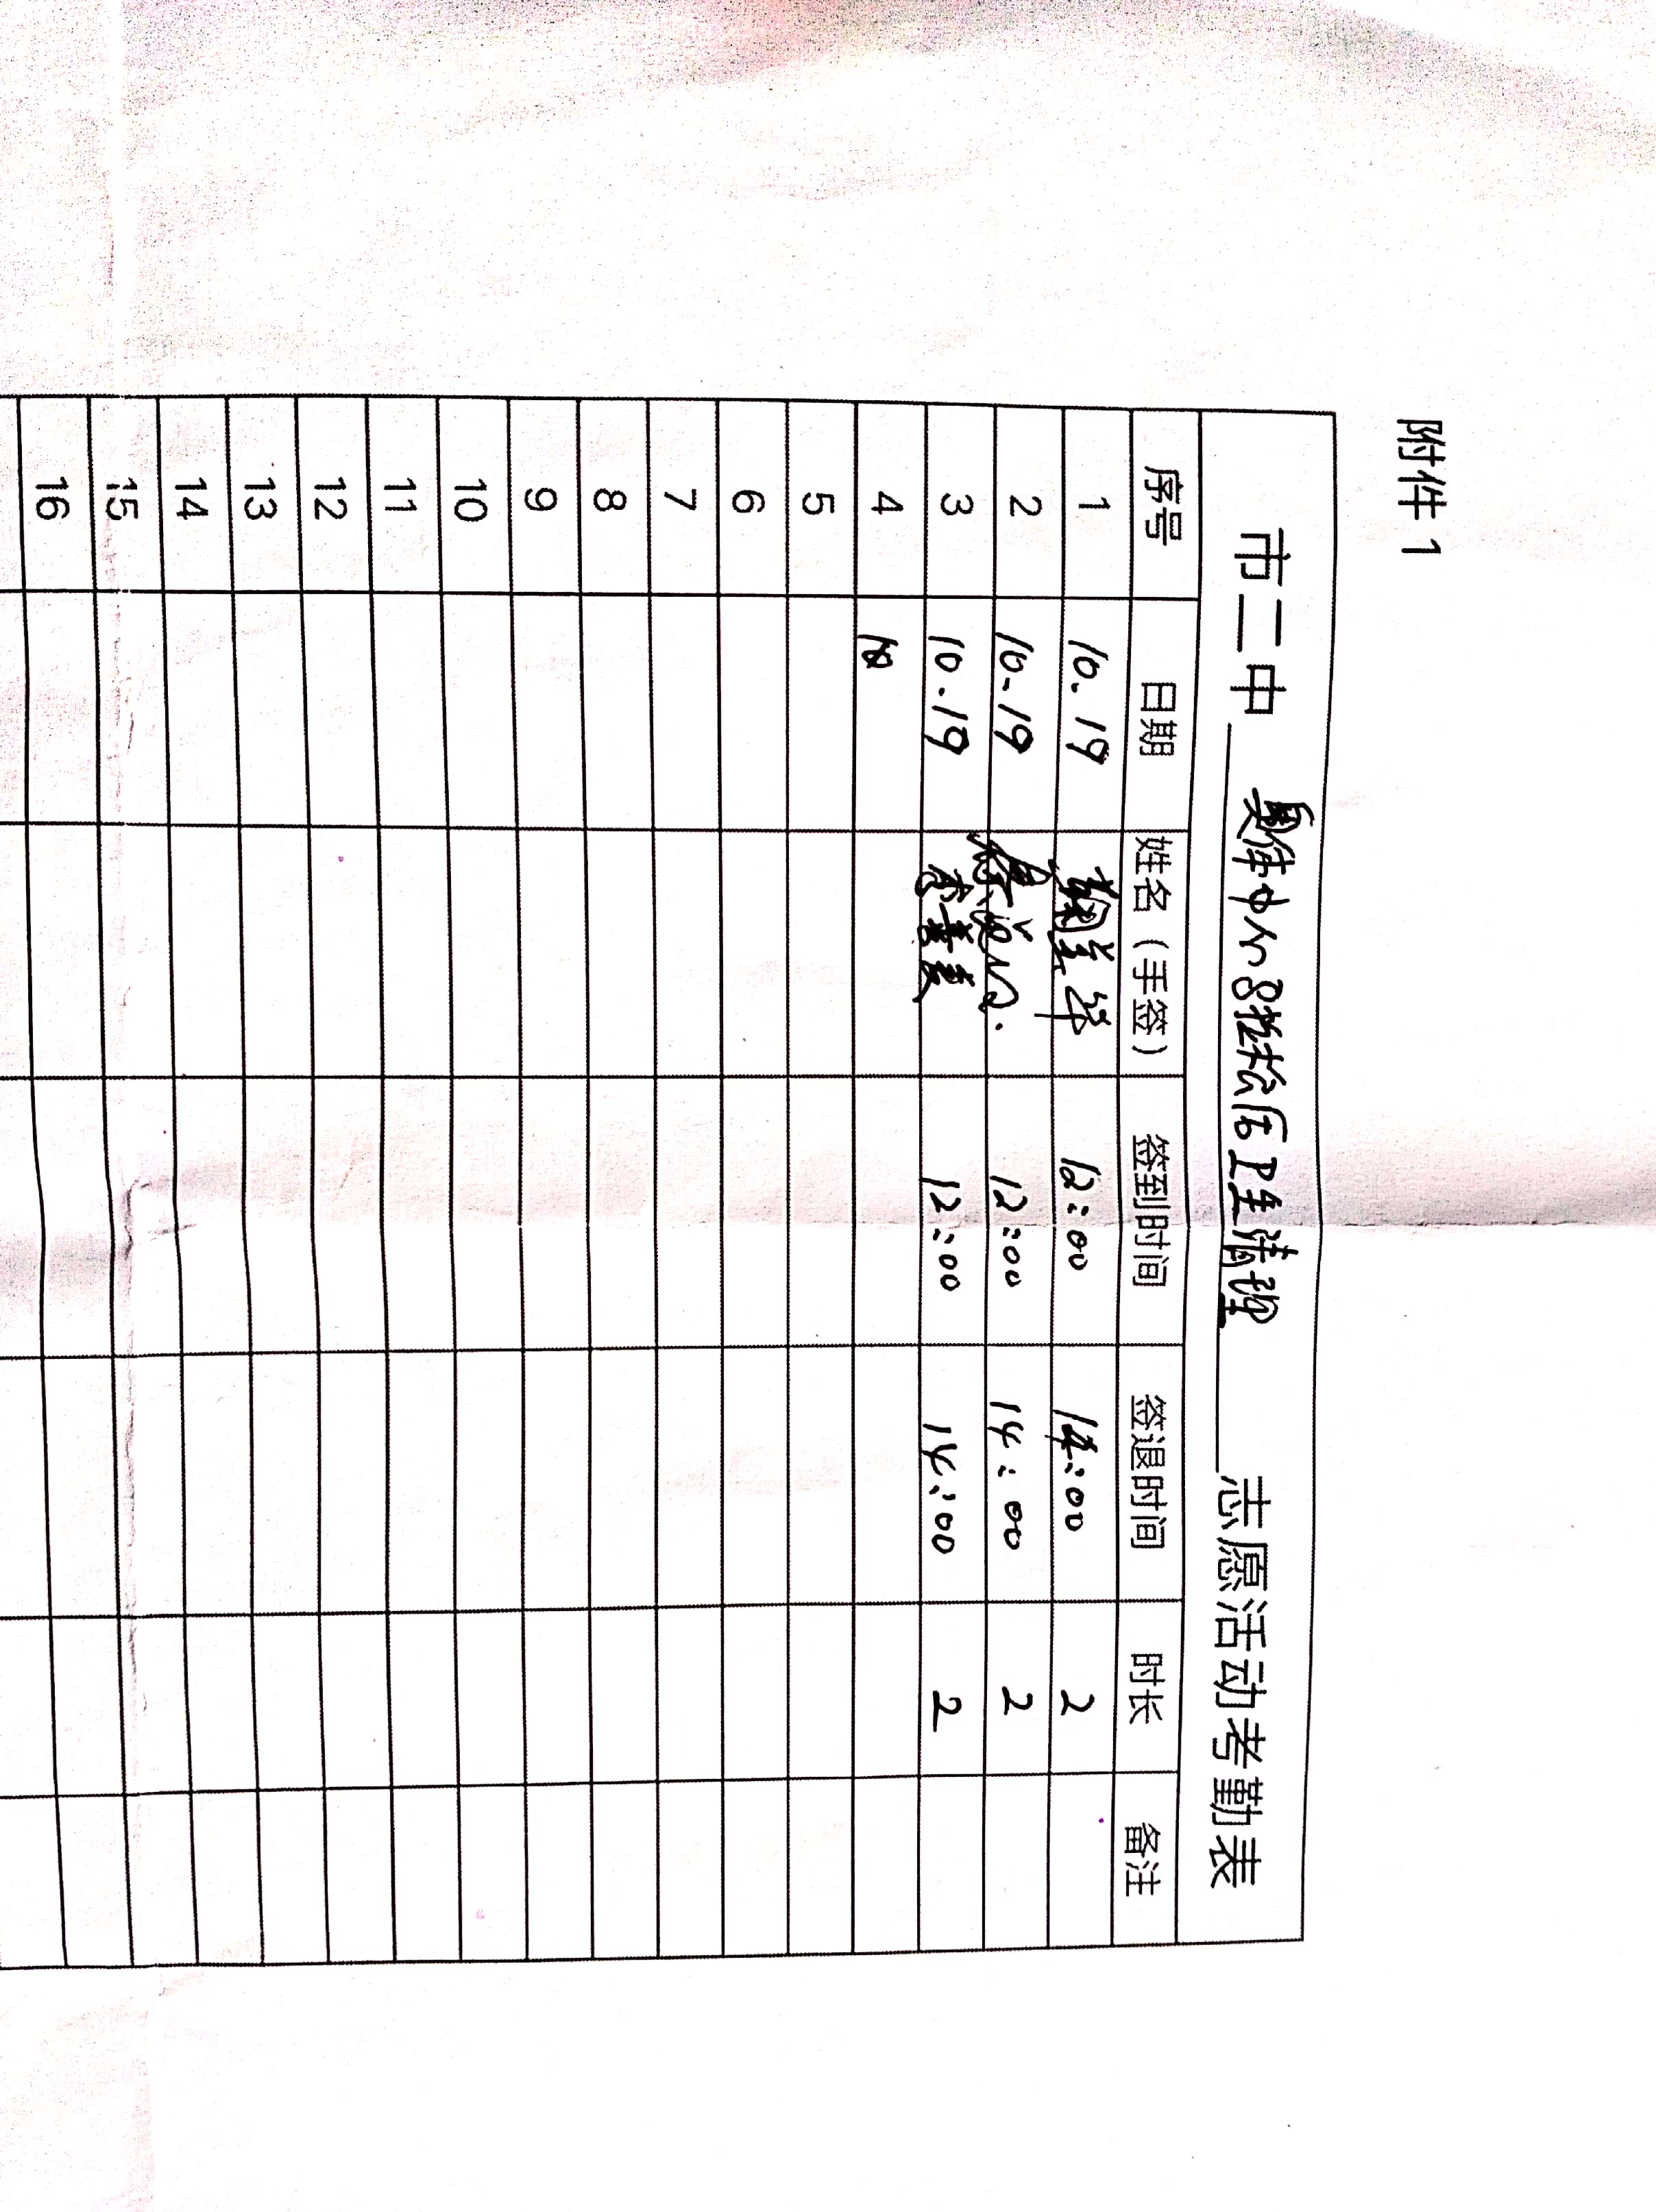 附件 1
市二中 卫生清理 志愿活动考勤表
序号 日期 姓名（手签） 签到时间 签退时间 时长 备注
1 10.19 12:00 14:00 2
2 10.19 12:00 14:00 2
3 10.19 12:00 14:00 2
4 10
5
6
7
8
9
10
11
12
13
14
15
16